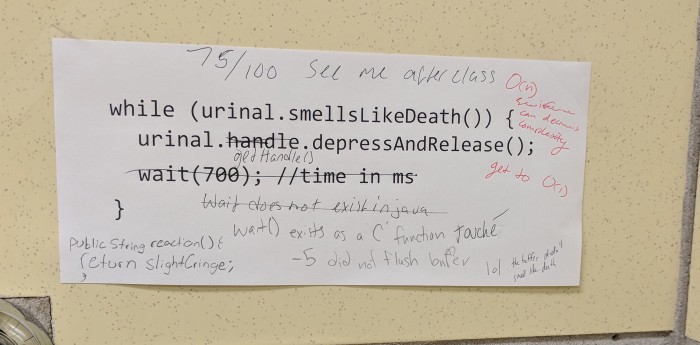 75/100 see me after class
O(n)
can
complexity
get to O(1)
while (urinal.smellsLikeDeath()) {
urinal.handle.depressAndRelease();
getHandle()
wait(700); //time in ms
Wait does not exist in java
}
wait() exits as a C function touché
-5 did not flush buffer
lol the buffer didn't
smell like death
public String reaction() {
return SlightCringe;
}